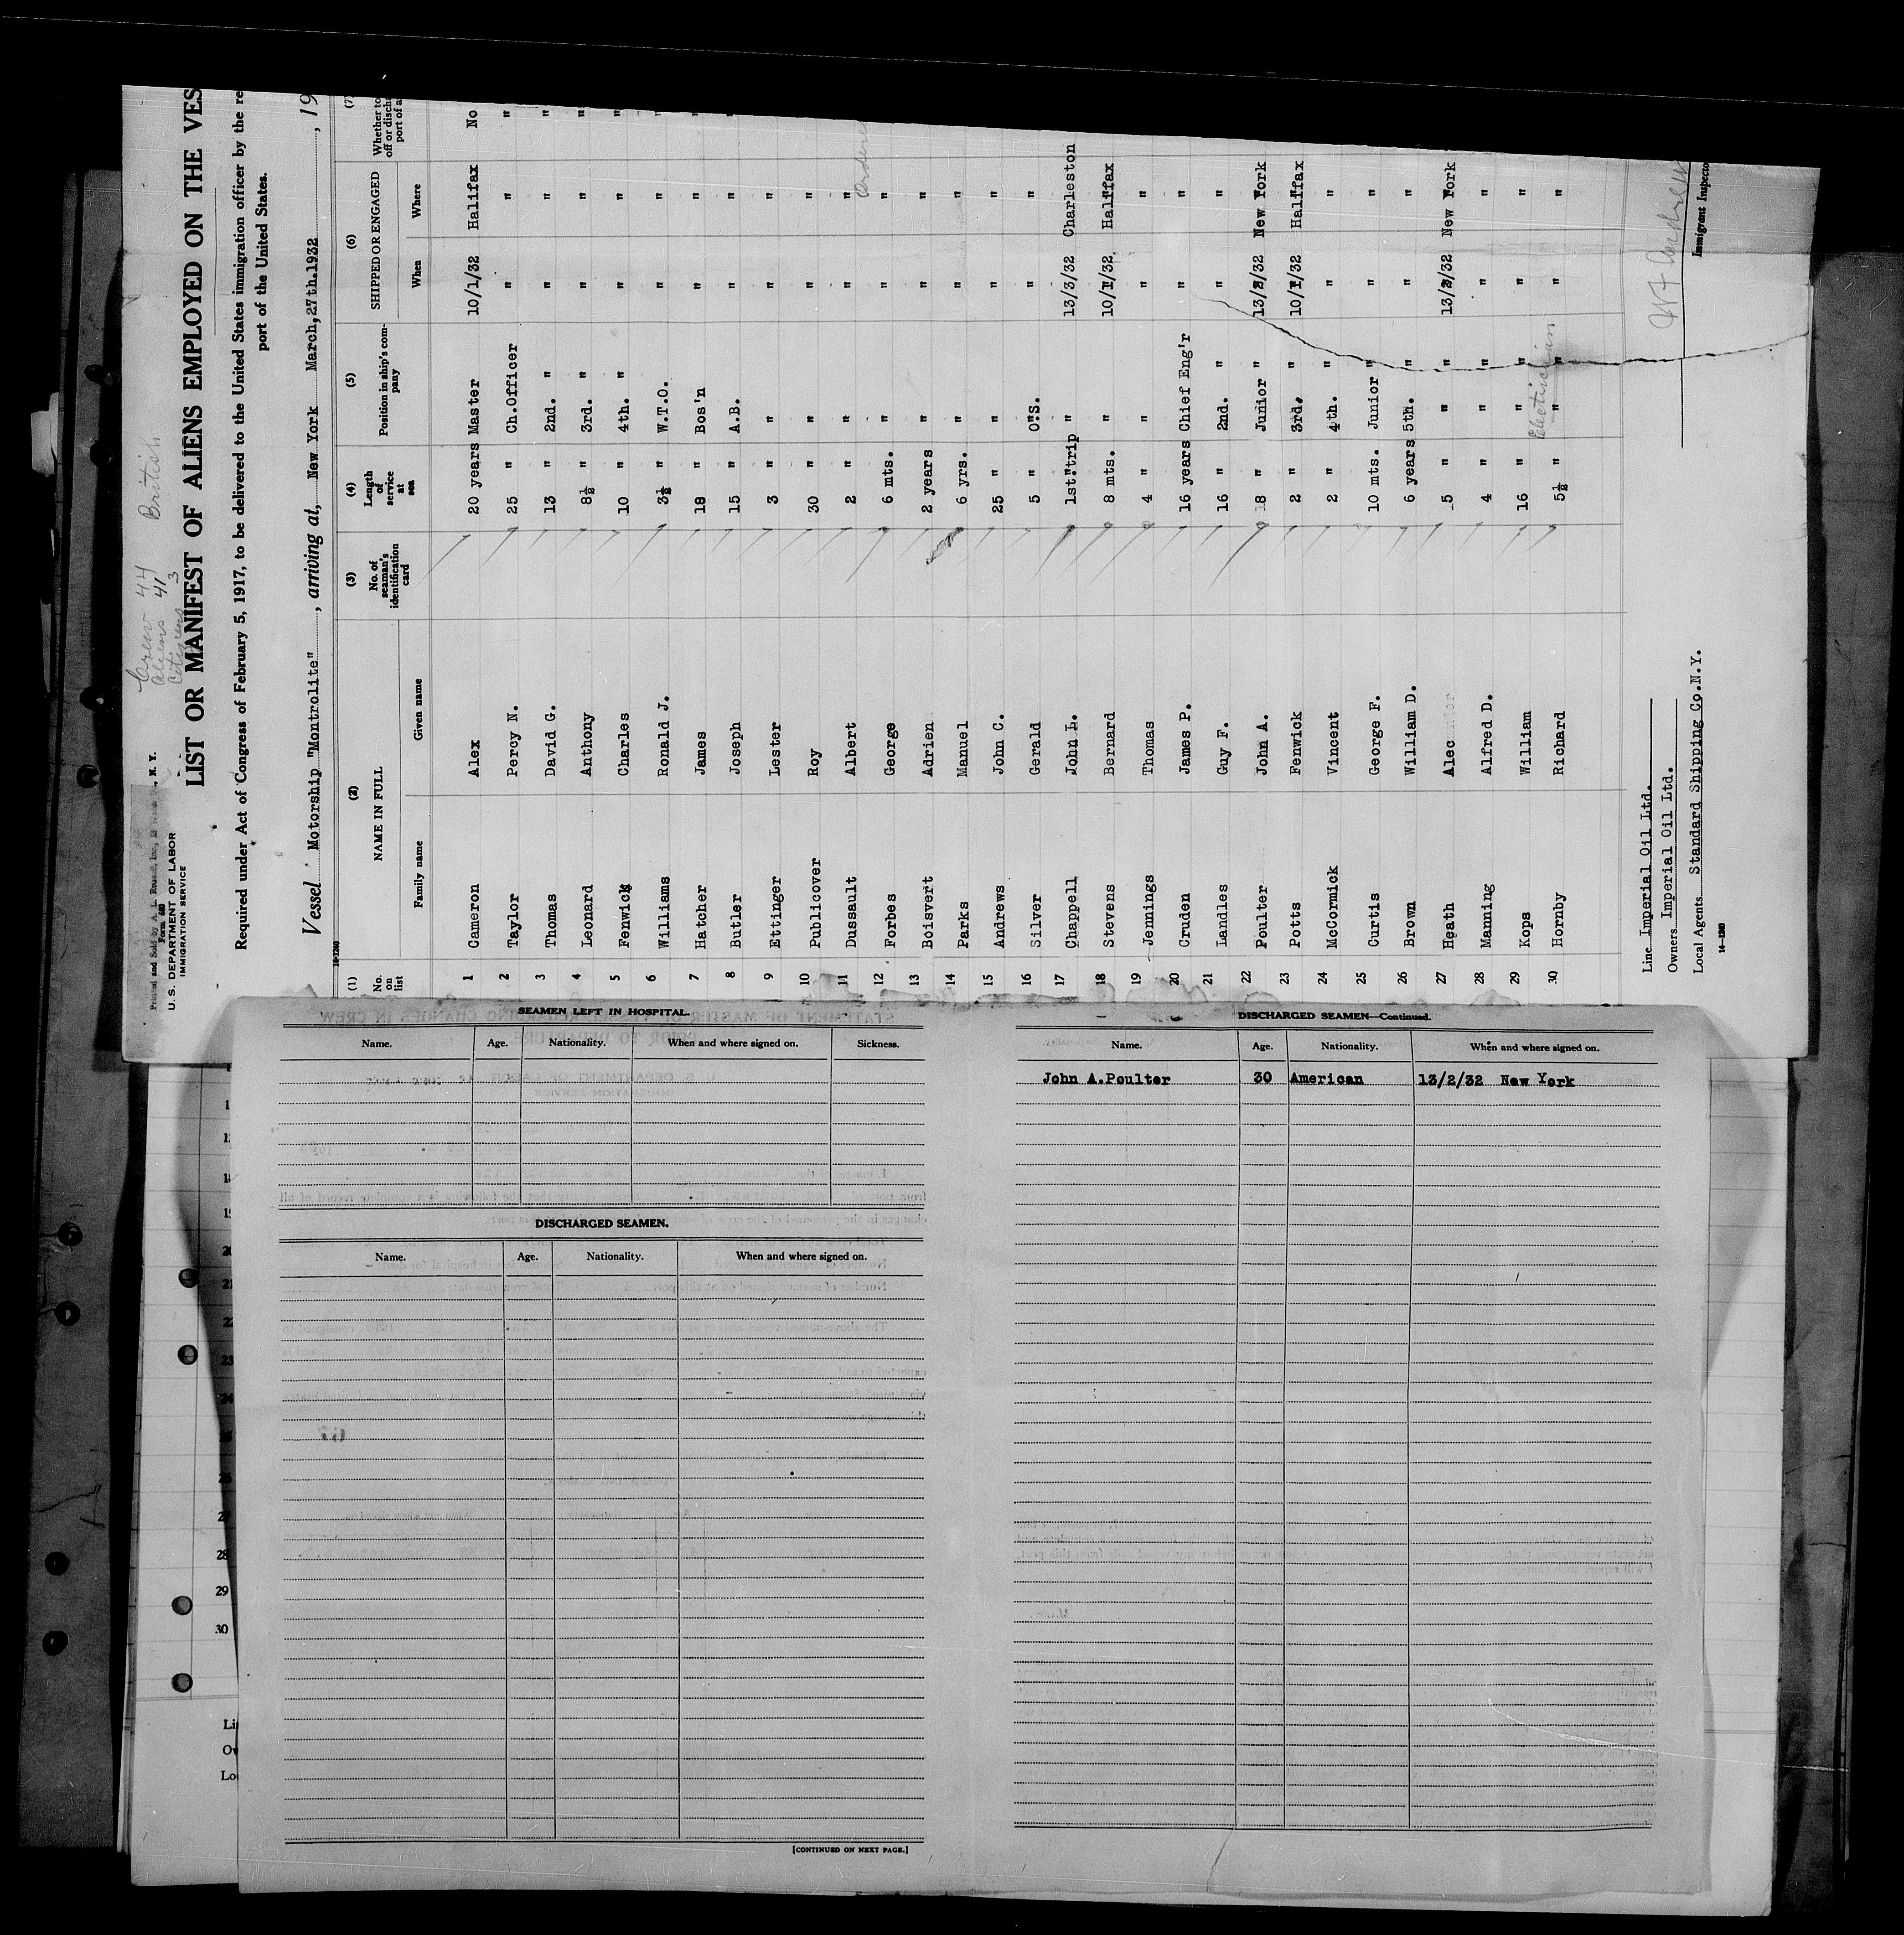 Crew 44 British
Aliens 41
Citizens 3
Printed and Sold by A. L. Russell, Inc., N. Y.
Form 680
U. S. DEPARTMENT OF LABOR
IMMIGRATION SERVICE
LIST OR MANIFEST OF ALIENS EMPLOYED ON THE VES
Required under Act of Congress of February 5, 1917, to be delivered to the United States immigration officer by the re
port of the United States.
Vessel Motorship "Montrolite", arriving at, New York March, 27th.1932, 19
(1) (2) (3) (4) (5) (6) (7)
No. on list NAME IN FULL No. of seaman's identification card Length of service at sea Position in ship's company SHIPPED OR ENGAGED Whether to
off or disch
port of a
Family name Given name When Where
1 Cameron Alex 20 years Master 10/1/32 Halifax No
2 Taylor Percy N. 25 " Ch.Officer " " "
3 Thomas David G. 13 " 2nd. " " " "
4 Leonard Anthony 8½ " 3rd. " " " "
5 Fenwick Charles 10 " 4th. " " " "
6 Williams Ronald J. 3½ " W.T.O. " " "
7 Hatcher James 18 " Bos'n " " "
8 Butler Joseph 15 " A.B. " " "
9 Ettinger Lester 3 " " " "
10 Publicover Roy 30 " " " "
11 Dussault Albert 2 " " " "
12 Forbes George 6 mts. " " "
13 Boisvert Adrien 2 years " " "
14 Parks Manuel 6 yrs. " " "
15 Andrews John C. 25 " " " "
16 Silver Gerald 5 " O.S. " "
17 Chappell John L. 1st trip " 13/3/32 Charleston
18 Stevens Bernard 8 mts. " 10/1/32 Halifax
19 Jennings Thomas 4 " " " "
20 Cruden James P. 16 years Chief Eng'r " "
21 Landles Guy F. 16 " 2nd. " " "
22 Poulter John A. 18 " Junior " 13/2/32 New York
23 Potts Fenwick 2 " 3rd. " 10/1/32 Halifax
24 McCormick Vincent 2 " 4th. " " "
25 Curtis George F. 10 mts. Junior " " "
26 Brown William D. 6 years 5th. " " "
27 Heath Alec 5 " " " 13/2/32 New York
28 Manning Alfred D. 4 " " " " "
29 Kops William 16 " " " " "
30 Hornby Richard 5½ " " " " "
Electician
Line Imperial Oil Ltd.
Owners Imperial Oil Ltd.
Local Agents Standard Shipping Co.N.Y.
Immigrant Inspecto
14—1240
SEAMEN LEFT IN HOSPITAL.
Name. Age. Nationality. When and where signed on. Sickness.
DISCHARGED SEAMEN.
Name. Age. Nationality. When and where signed on.
[CONTINUED ON NEXT PAGE.]
DISCHARGED SEAMEN—Continued.
Name. Age. Nationality. When and where signed on.
John A.Poulter 30 American 13/2/32 New York
19
20
21
22
23
24
26
27
28
29
30
Li
Ow
Lo